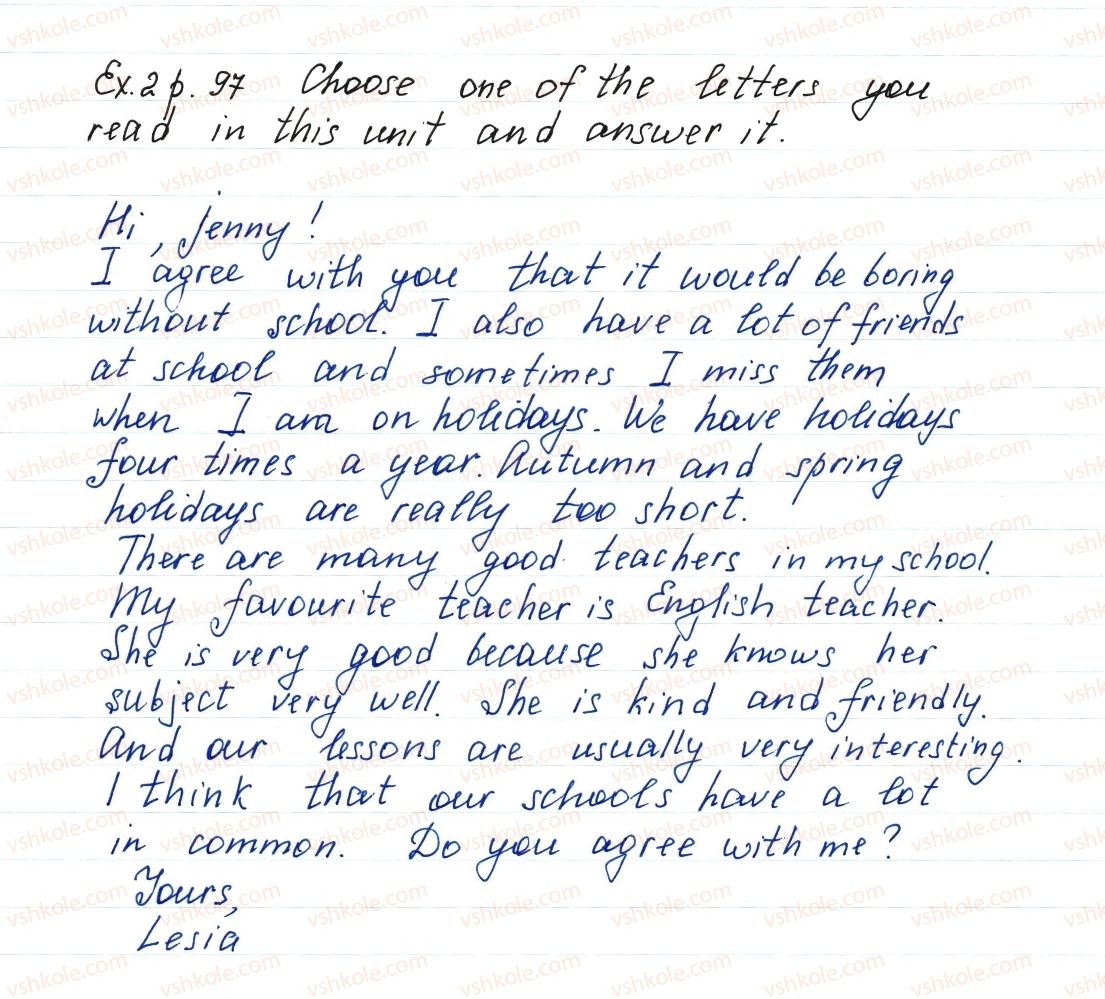 Ex. 2 p. 97 Choose one of the letters you
read in this unit and answer it.
Hi, Jenny!
I agree with you that it would be boring
without school. I also have a lot of friends
at school and sometimes I miss them
when I am on holidays. We have holidays
four times a year. Autumn and spring
holidays are really too short.
There are many good teachers in my school.
My favourite teacher is English teacher.
She is very good because she knows her
subject very well. She is kind and friendly.
And our lessons are usually very interesting.
I think that our schools have a lot
in common. Do you agree with me?
Yours,
Lesia